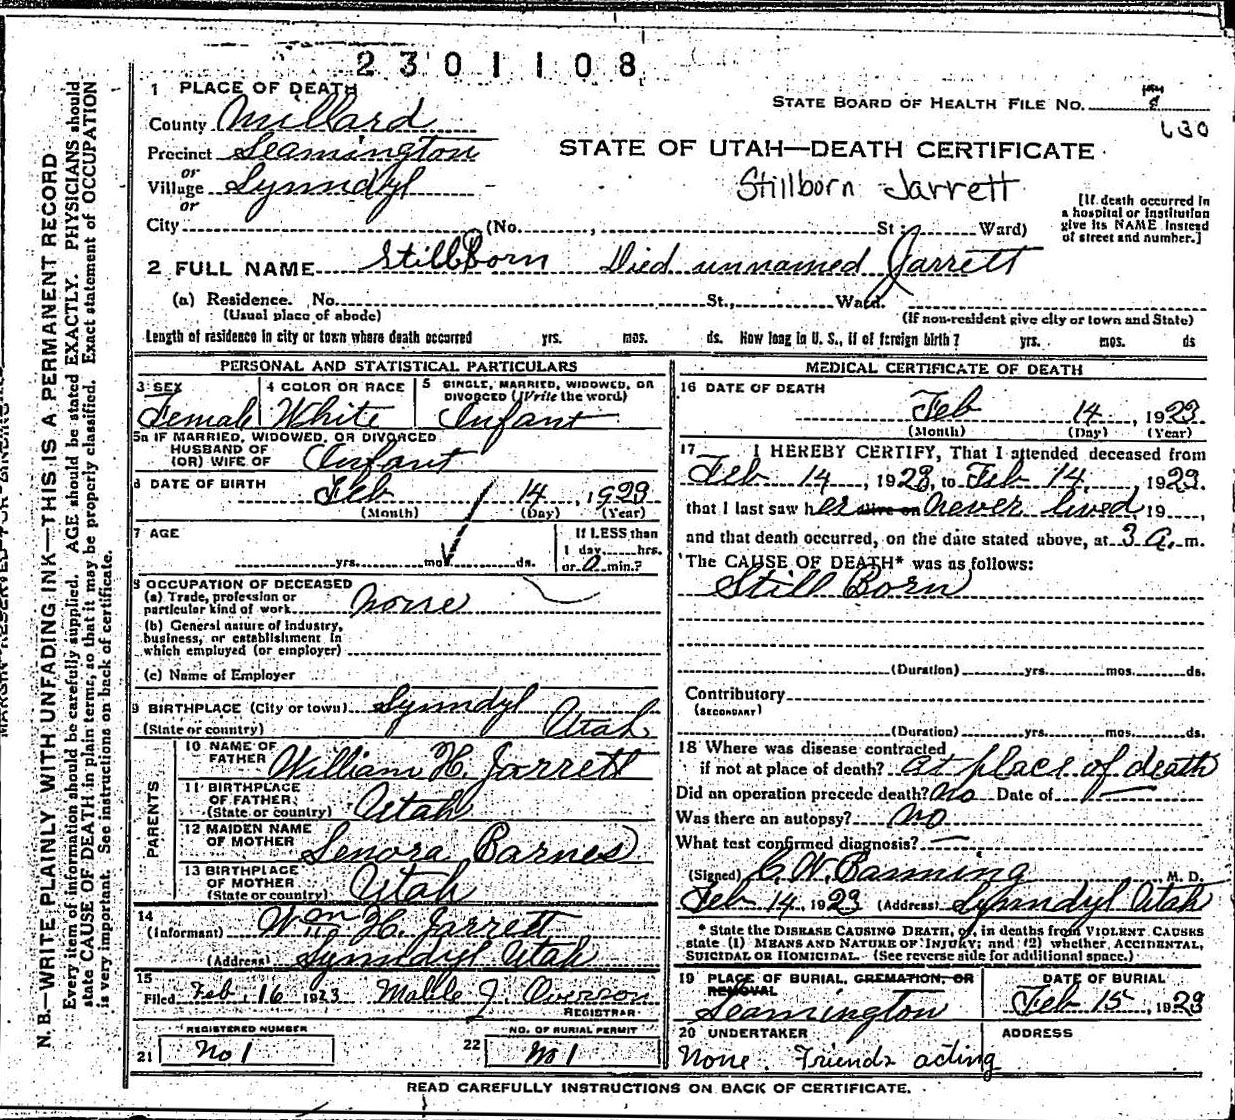 2301108
1 PLACE OF DEATH
STATE BOARD OF HEALTH FILE NO. 8
630
County Millard
Precinct Leamington
or
Village Lynndyl
or
STATE OF UTAH—DEATH CERTIFICATE
Stillborn Jarrett
[If death occurred in
a hospital or institution
give its NAME instead
of street and number.]
City (No. , St ; Ward)
2 FULL NAME StillBorn Died unnamed Jarrett
(a) Residence. No. St., Ward.
(Usual place of abode) (If non-resident give city or town and State)
Length of residence in city or town where death occurred yrs. mos. ds. How long in U. S., if of foreign birth? yrs. mos. ds
PERSONAL AND STATISTICAL PARTICULARS
3 SEX
Female
4 COLOR OR RACE
White
5 SINGLE, MARRIED, WIDOWED, OR
DIVORCED (Write the word)
Infant
5a IF MARRIED, WIDOWED, OR DIVORCED
HUSBAND OF
(OR) WIFE OF Infant
6 DATE OF BIRTH
Feb 14, 1923
(Month) (Day) (Year)
7 AGE
yrs. mos. ds.
If LESS than
1 day, hrs.
or 0 min.?
8 OCCUPATION OF DECEASED
(a) Trade, profession or
particular kind of work none
(b) General nature of industry,
business, or establishment in
which employed (or employer)
(c) Name of Employer
9 BIRTHPLACE (City or town) Lynndyl
(State or country) Utah
PARENTS
10 NAME OF
FATHER William H. Jarrett
11 BIRTHPLACE
OF FATHER
(State or country) Utah
12 MAIDEN NAME
OF MOTHER Lenora Barnes
13 BIRTHPLACE
OF MOTHER
(State or country) Utah
14
(Informant) Wm H. Jarrett
(Address) Lynndyl Utah
15
Filed Feb, 16 1923 Mable J. Overson
REGISTRAR
REGISTERED NUMBER
21 No 1
NO. OF BURIAL PERMIT
22 No 1
MEDICAL CERTIFICATE OF DEATH
16 DATE OF DEATH
Feb 14, 1923
(Month) (Day) (Year)
17 I HEREBY CERTIFY, That I attended deceased from
Feb 14, 1923, to Feb 14, 1923.
that I last saw her alive on never lived, 19 ,
and that death occurred, on the date stated above, at 3 a. m.
The CAUSE OF DEATH* was as follows:
Still Born
(Duration) yrs. mos. ds.
Contributory
(SECONDARY)
(Duration) yrs. mos. ds.
18 Where was disease contracted
if not at place of death? at place of death
Did an operation precede death? No Date of
Was there an autopsy? No
What test confirmed diagnosis?
(Signed) C. W. Banning M. D.
Feb 14, 1923 (Address) Lynndyl Utah
* State the DISEASE CAUSING DEATH, or, in deaths from VIOLENT CAUSES
state (1) MEANS AND NATURE OF INJURY; and (2) whether ACCIDENTAL,
SUICIDAL OR HOMICIDAL. (See reverse side for additional space.)
19 PLACE OF BURIAL, CREMATION, OR
REMOVAL
Leamington
DATE OF BURIAL
Feb 15, 1923
20 UNDERTAKER
None. Friends acting
ADDRESS
READ CAREFULLY INSTRUCTIONS ON BACK OF CERTIFICATE.
N. B.—WRITE PLAINLY WITH UNFADING INK—THIS IS A PERMANENT RECORD
Every item of information should be carefully supplied. AGE should be stated EXACTLY. PHYSICIANS should
state CAUSE OF DEATH in plain terms, so that it may be properly classified. Exact statement of OCCUPATION
is very important. See instructions on back of certificate.